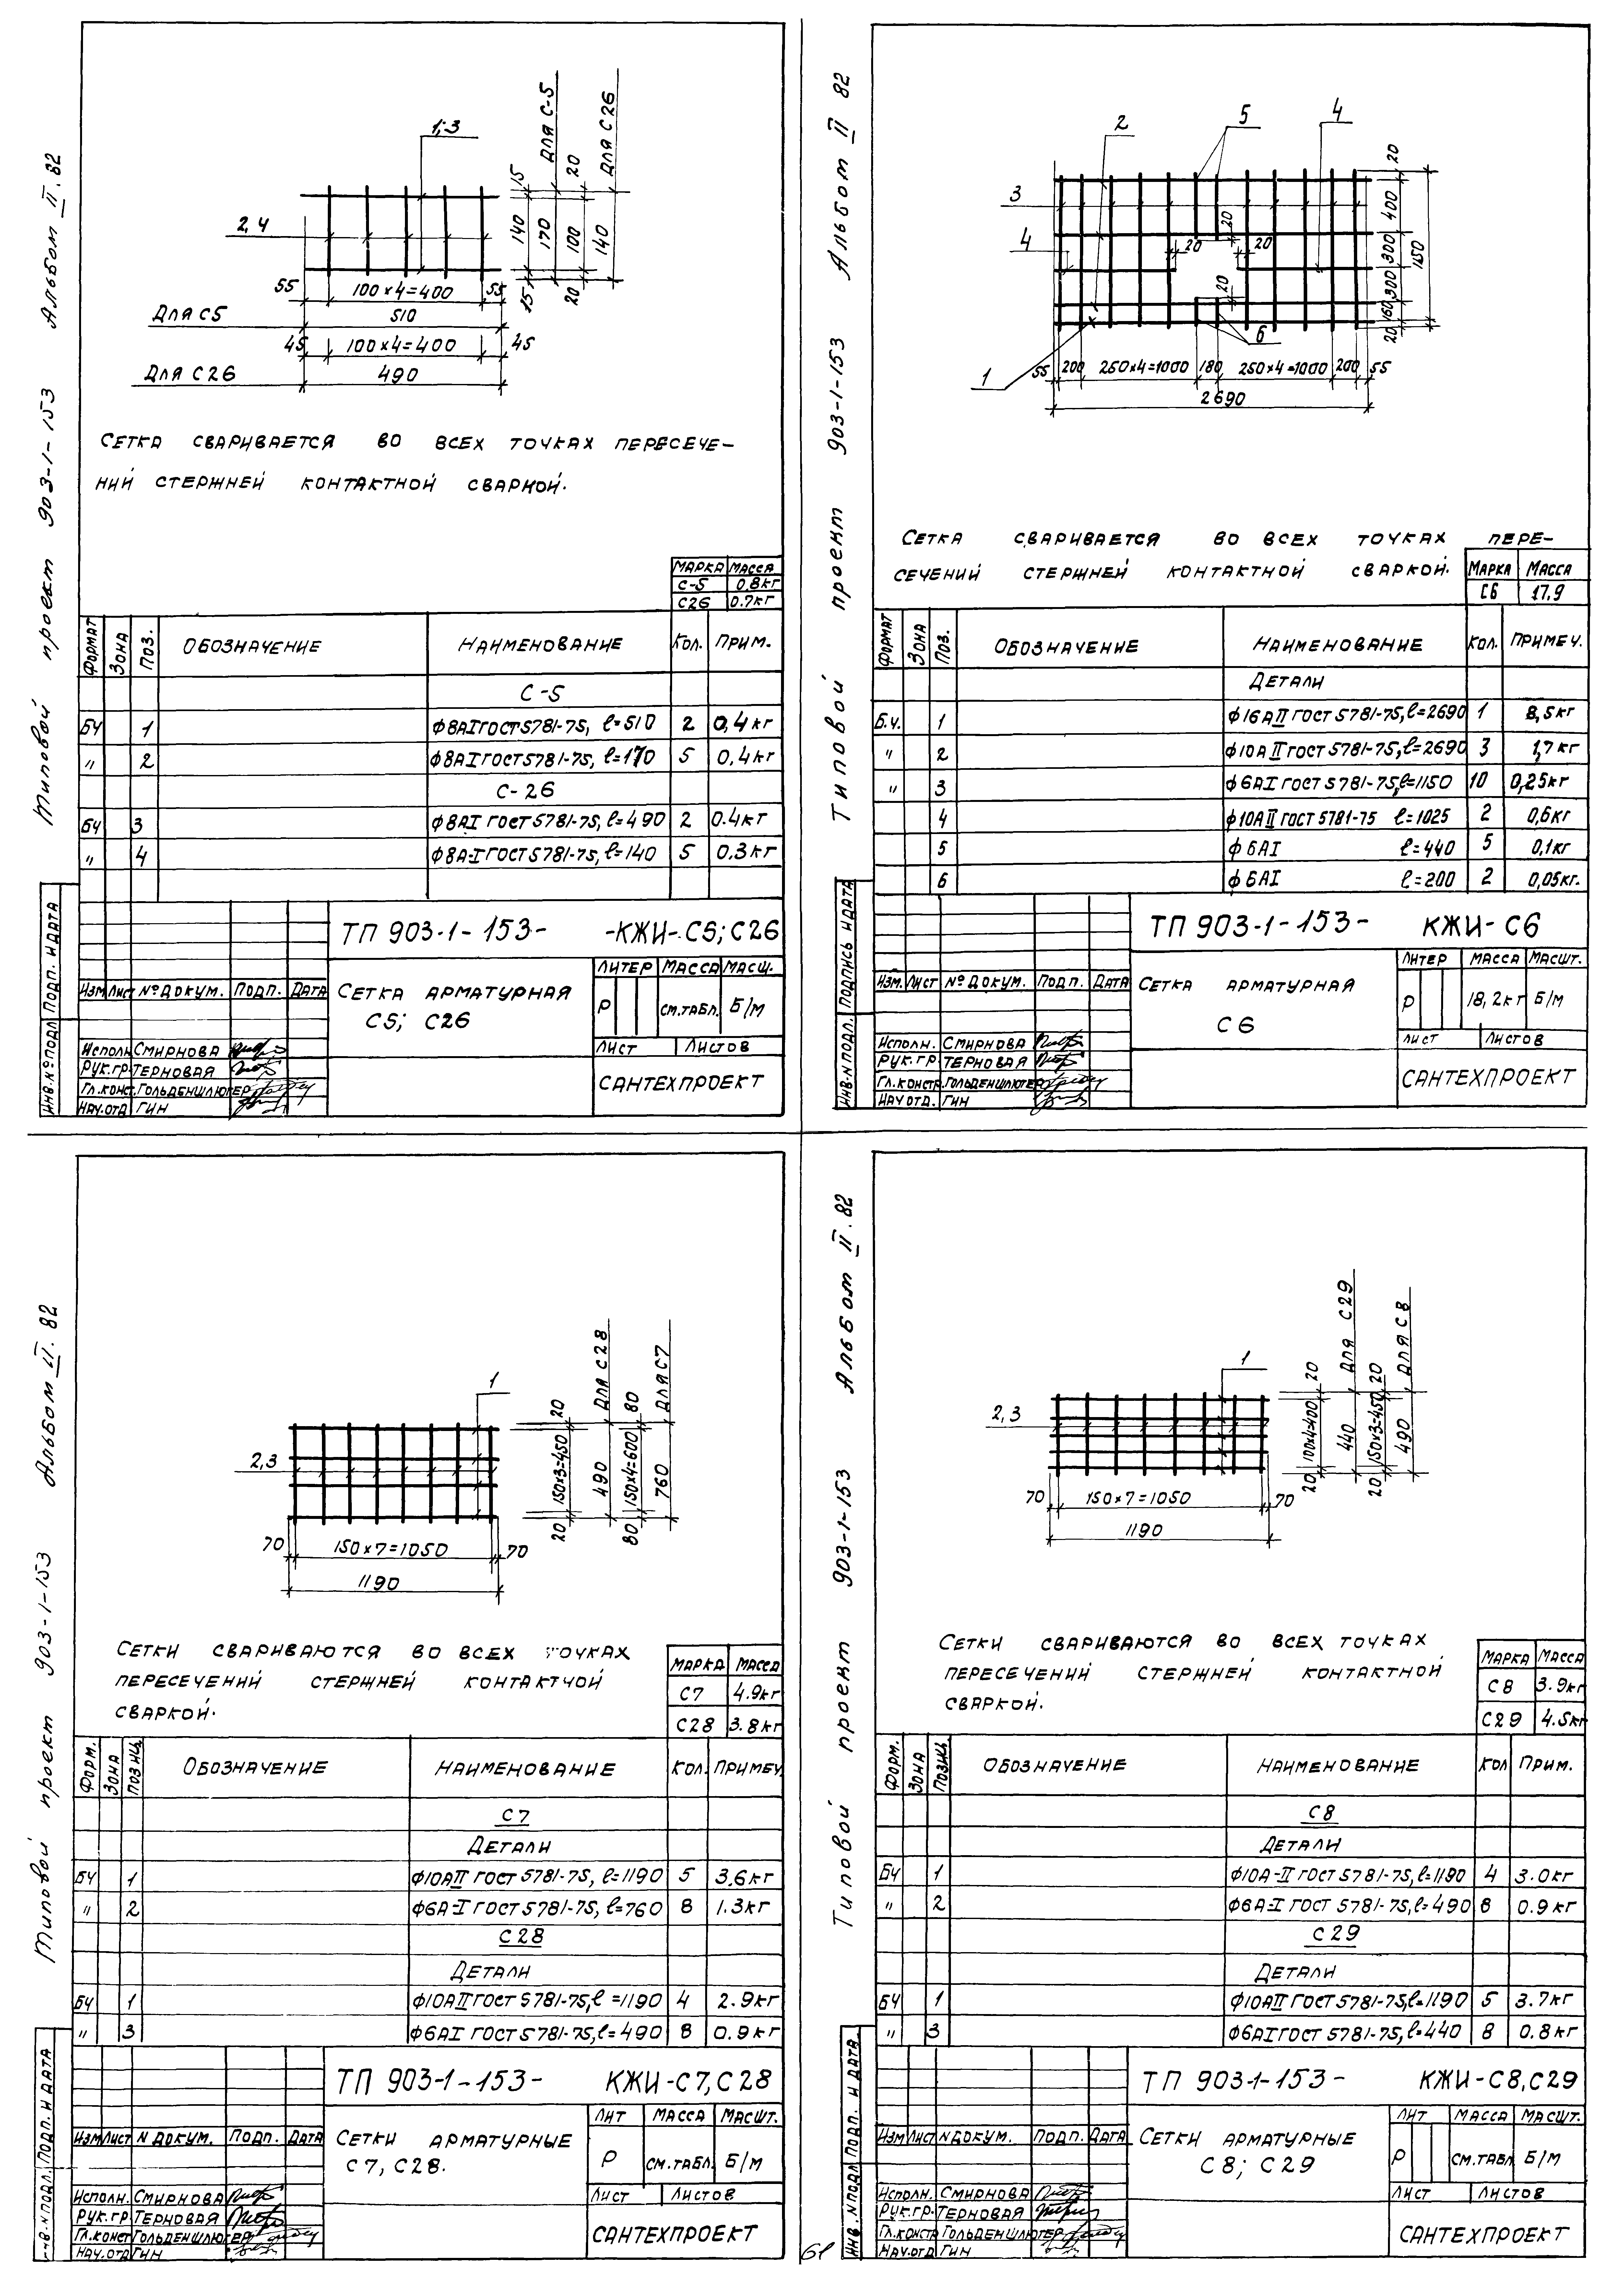 Типовой проект 903-1-153 Альбом II. 82
1;3
2,4
15 140 15
170
Для С-5
20 100 20
140
Для С26
55 100×4=400 55
Для С5 510
45 100×4=400 45
Для С26 490
Сетка сваривается во всех точках пересече-
ний стержней контактной сваркой.
Марка Масса
С-5 0.8кг
С26 0.7кг
Формат Зона Поз. Обозначение Наименование Кол. Прим.
С-5
БЧ 1 ф8АI ГОСТ 5781-75, ℓ=510 2 0,4кг
〃 2 ф8АI ГОСТ 5781-75, ℓ=170 5 0.4кг
С-26
БЧ 3 ф8АI ГОСТ 5781-75, ℓ=490 2 0.4кг
〃 4 ф8А-I ГОСТ 5781-75, ℓ=140 5 0.3кг
ТП 903-1-153- -КЖИ-С5; С26
Литер Масса Масш.
Изм Лист № докум. Подп. Дата
Сетка арматурная
С5; С26
Р см.табл. Б/М
Лист Листов
Исполн. Смирнова
Рук.гр Терновая
Гл.конст. Гольденшлюгер
Нач.отд Гин
Сантехпроект
Инв.№ подл Подп. и дата
Типовой проект 903-1-153 Альбом II 82
2 5 4
3
4
20
20 20
20
6
1
20 400 300 300 160 20
1150
55 200 250×4=1000 180 250×4=1000 200 55
2690
Сетка сваривается во всех точках пере-
сечений стержней контактной сваркой.
Марка Масса
С6 17,9
Формат Зона Поз. Обозначение Наименование Кол. Примеч.
Детали
Б.ч. 1 ф16АII ГОСТ 5781-75, ℓ=2690 1 8,5кг
〃 2 ф10АII ГОСТ 5781-75, ℓ=2690 3 1,7кг
〃 3 ф6АI ГОСТ 5781-75, ℓ=1150 10 0,25кг
4 ф10АII ГОСТ 5781-75 ℓ=1025 2 0,6кг
5 ф6АI ℓ=440 5 0,1кг
6 ф6АI ℓ=200 2 0,05кг.
ТП 903-1-153- КЖИ-С6
Литер Масса Масшт.
Изм. Лист № докум. Подп. Дата
Сетка арматурная
С6
Р 18,2кг Б/М
Лист Листов
Исполн. Смирнова
Рук.гр Терновая
Гл.констр. Гольденшлюгер
Нач отд. Гин
Сантехпроект
Инв.№ подл. Подпись и дата
Типовой проект 903-1-153 Альбом II. 82
1
2,3
20 150×3=450 20
490
Для С28
80 150×4=600 80
760
Для С7
70 150×7=1050 70
1190
Сетки свариваются во всех точках
пересечений стержней контактной
сваркой.
Марка Масса
С7 4.9кг
С28 3.8кг
Форм. Зона Позиц. Обозначение Наименование Кол. Примеч.
С7
Детали
БЧ 1 ф10АII ГОСТ 5781-75, ℓ=1190 5 3.6кг
〃 2 ф6А-I ГОСТ 5781-75, ℓ=760 8 1.3кг
С28
Детали
БЧ 1 ф10АII ГОСТ 5781-75, ℓ=1190 4 2.9кг
〃 3 ф6АI ГОСТ 5781-75, ℓ=490 8 0.9кг
ТП 903-1-153- КЖИ-С7, С28
Лит Масса Масшт.
Изм Лист N докум. Подп. Дата
Сетки арматурные
С7, С28.
Р см.табл. Б/М
Лист Листов
Исполн. Смирнова
Рук.гр Терновая
Гл.конст Гольденшлюгер
Нач.отд Гин
Сантехпроект
Инв.N подл. Подп. и дата
Типовой проект 903-1-153 Альбом II. 82
1
2,3
20 100×4=400 20
440
Для С29
20 150×3=450 20
490
Для С8
70 150×7=1050 70
1190
Сетки свариваются во всех точках
пересечений стержней контактной
сваркой.
Марка Масса
С8 3.9кг
С29 4.5кг
Форм. Зона Позиц. Обозначение Наименование Кол Прим.
С8
Детали
БЧ 1 ф10А-II ГОСТ 5781-75, ℓ=1190 4 3.0кг
〃 2 ф6А-I ГОСТ 5781-75, ℓ=490 8 0.9кг
С29
Детали
БЧ 1 ф10АII ГОСТ 5781-75, ℓ=1190 5 3.7кг
〃 3 ф6АI ГОСТ 5781-75, ℓ=440 8 0.8кг
ТП 903-1-153- КЖИ-С8, С29
Лит Масса Масшт.
Изм Лист N докум. Подп. Дата
Сетки арматурные
С8; С29
Р см.табл Б/М
Лист Листов
Исполн. Смирнова
Рук.гр. Терновая
Гл.констр Гольденшлюгер
Нач.отд Гин
Сантехпроект
Инв.N подл Подп. и дата.
61